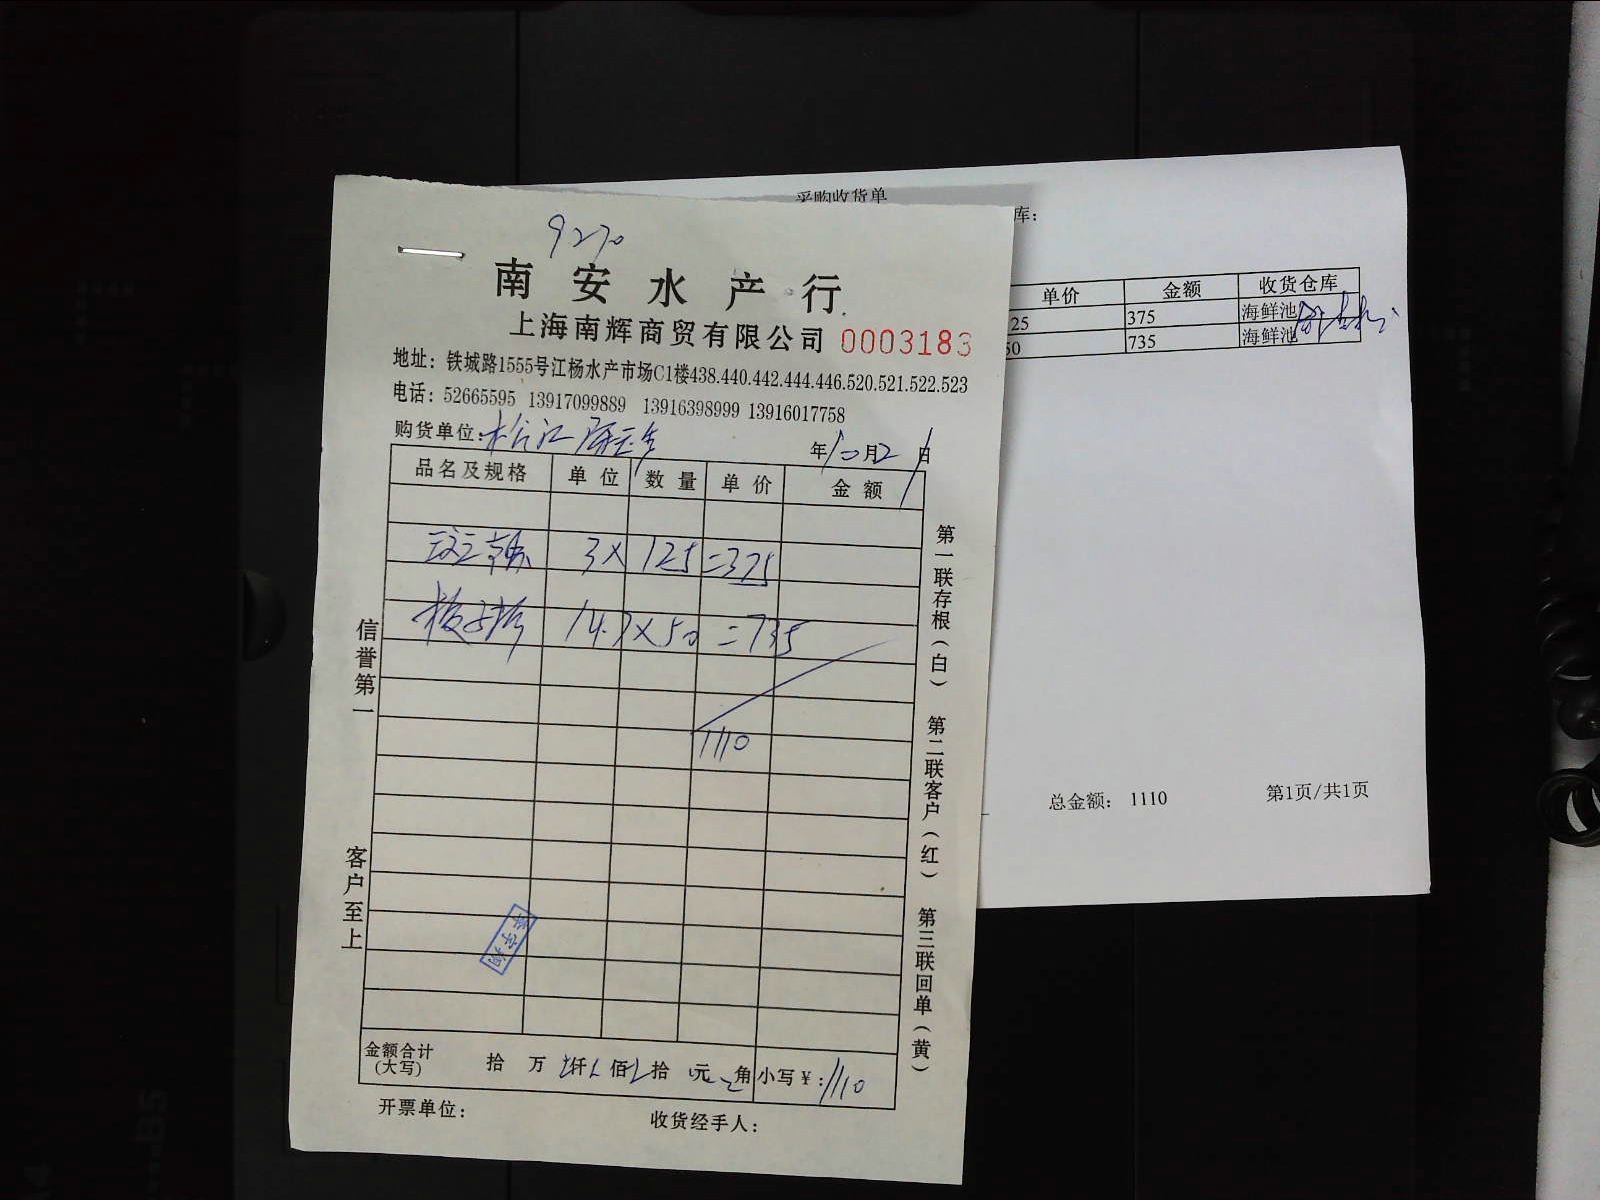 9270
南安水产行
上海南辉商贸有限公司 0003183
地址：铁城路1555号江杨水产市场C1楼438.440.442.444.446.520.521.522.523
电话：52665595 13917099889 13916398999 13916017758
购货单位：松江 年10月2日
品名及规格 单位 数量 单价 金额
3× 125=375
14.7×50=735
1110
金额合计(大写) 拾 万 仟 佰 拾 元 角 小写￥：1110
开票单位： 收货经手人：
信誉第一
客户至上
第一联存根（白） 第二联客户（红） 第三联回单（黄）
采购收货单
库：
单价 金额 收货仓库
25 375 海鲜池
50 735 海鲜池
总金额： 1110 第1页/共1页